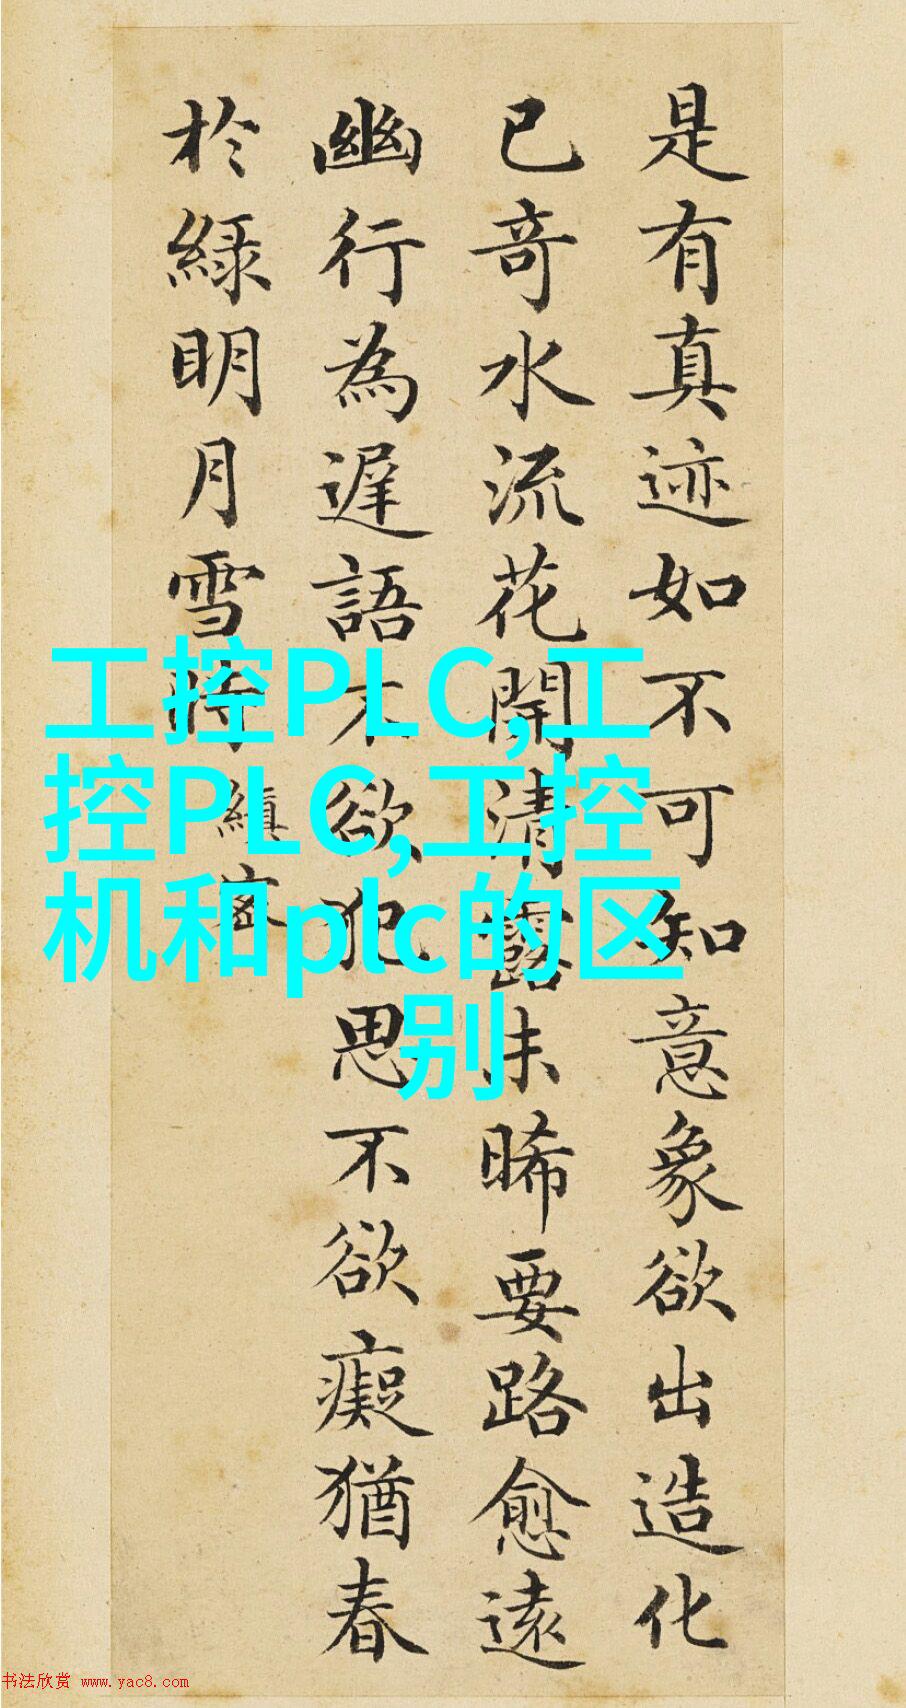 是有真迹如不可知意象欲出造化
已奇水流花開清露未晞要路愈遠
幽行為遲語不欲犯思不欲癡猶春
於綠明月雪時縝密
工控PLC,工
控PLC,工控
机和plc的区
别
书法欣赏 www.yac8.com